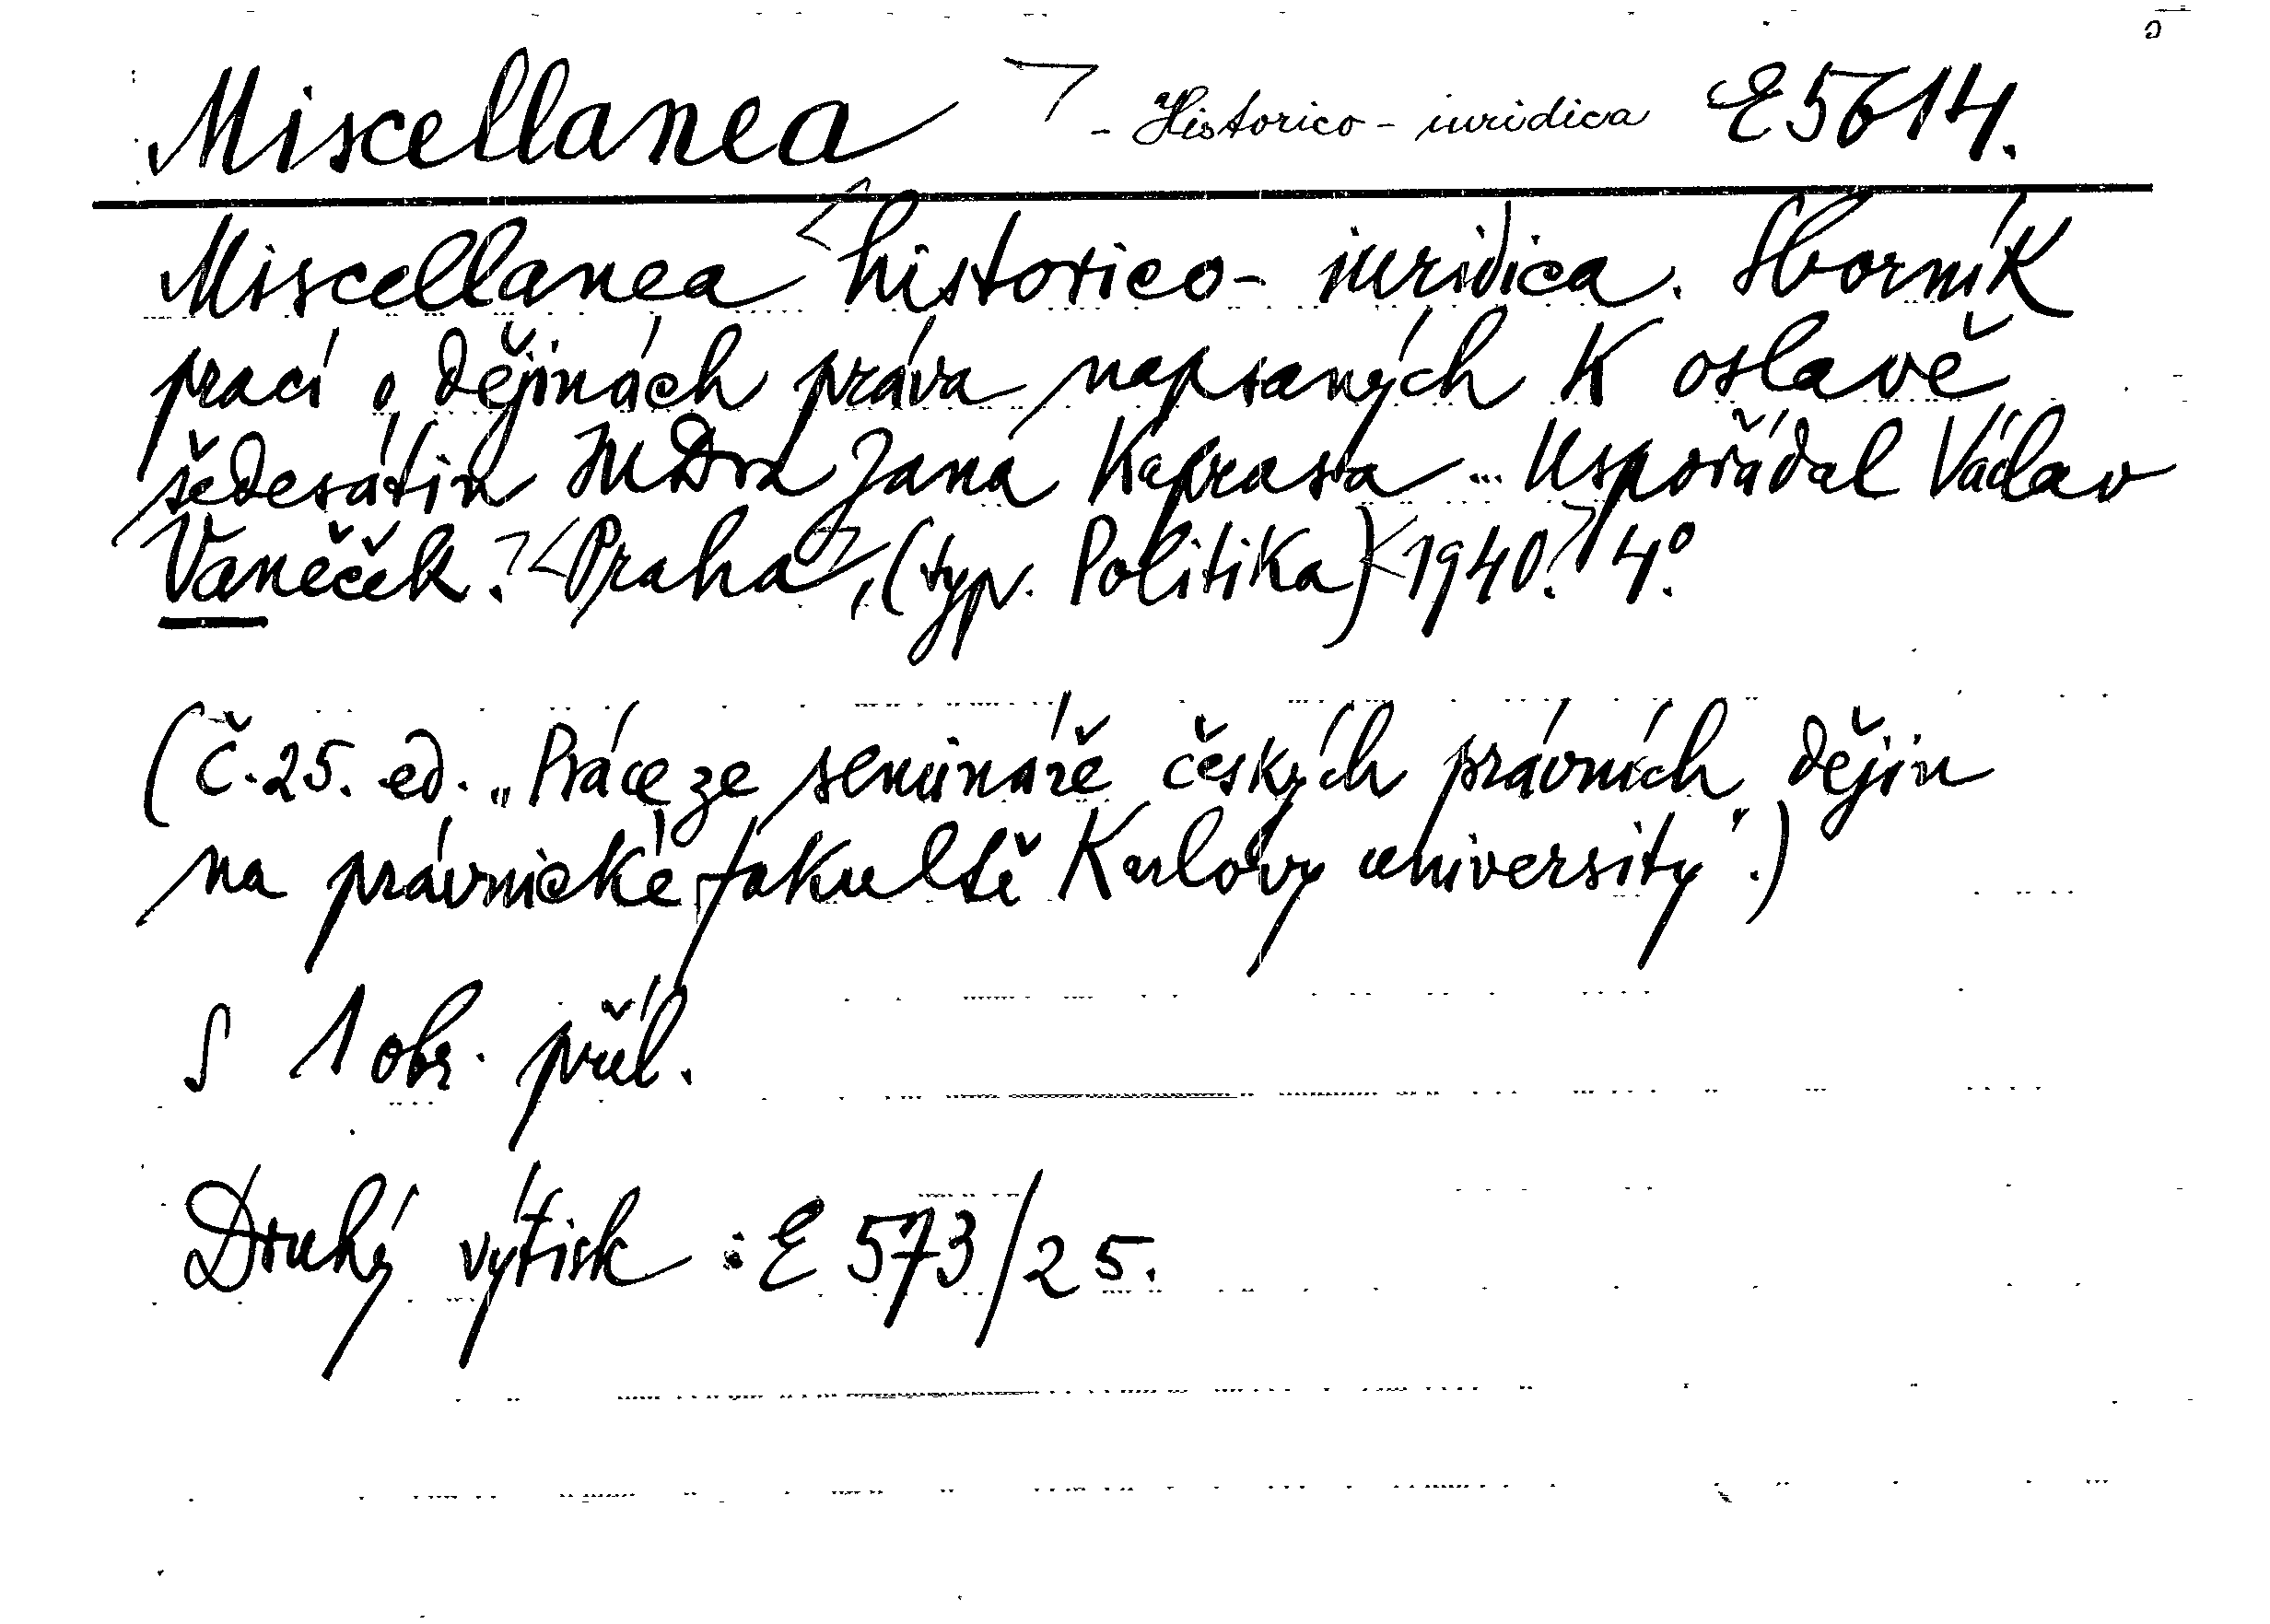 Miscellanea - Historico - iuridica E 5614.
Miscellanea historico - iuridica. Sborník
prací o dějinách práva napsaných k oslavě
šedesátin JUDra Jana Kaprasa ... Uspořádal Václav
Vaněček. Praha, (typ. Politika) 1940. 4°.
(Č. 25. ed. „Práce ze semináře českých právních dějin
na právnické fakultě Karlovy university“.)
S 1 obr. příl.
Druhý výtisk : E 573/25.